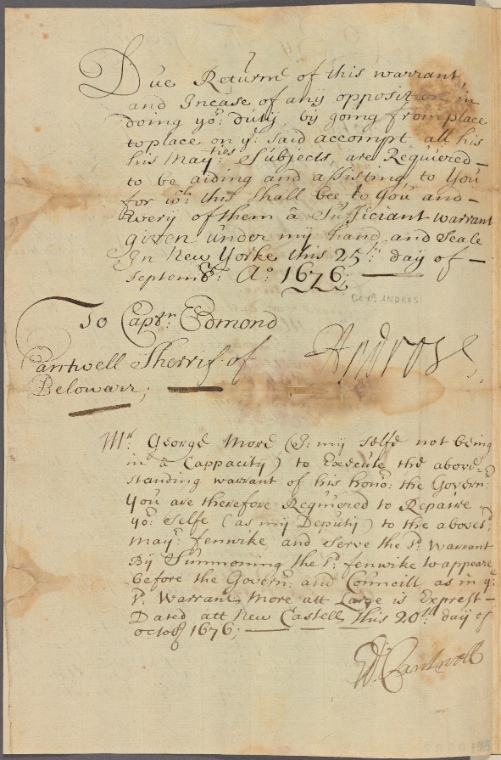 Due Returne of this warrant,
and Incase, of any opposition in
doing yoʳ: duty, by going from place
to place on yᵉ: said accompt, all his
his Mayᵗⁱᵉˢ: Subjects, are Requiered —
to be aiding and assisting to You
for wᶜʰ: this Shall bee to You and —
Every of them a Sufficiant warrant
given under my hand and Seale
In New Yorke this 25ᵗʰ: day of —
Septembʳ: Aᵒ: 1676: —
Gov. ANDROS
To Captⁿ: Edmond
Cantwell Sherrif: of
Delowarr;
Andross,
Mʳ: George More (I: my selfe not being
in a Cappacity) to Execute the above-
standing warrant of his honoʳ: the Governʳ:
You are therefore Requiered to Repaire
yoʳ: Selfe (as my Deputy) to the abovesᵈ:
mayʳ: fenwike and Serve the sᵈ: Warrant
By Summoning the sᵈ: fenwike to appeare
before the Governʳ: and Councill as in yᵉ:
sᵈ: Warrant More att Large is Exprest —
Dated att New Castell This 20ᵗʰ: day of
octobʳ 1676; —
Edᵐ: Cantwell